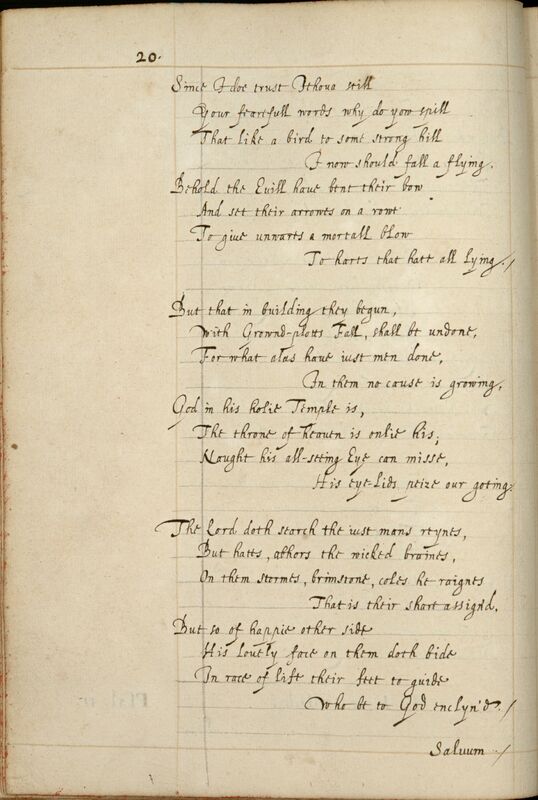 20.
Since I doe trust Iehova still
Your fearefull words why do yow spill
That like a bird to some strong hill
I now should fall a flying.
Behold the Evill have bent their bow
And set their arrowes on a rowe
To give unwares a mortall blow
To harts that hate all lying./
But that in building they begun,
With Grownd-plotts Fall, shall be undone,
For what alas have iust men done,
In them no cause is growing.
God in his holie Temple is,
The throne of heaven is onlie his;
Naught his all-seeing Eye can misse,
His eye-Lids peize our going.
The Lord doth search the iust mans reynes,
But hates, abhors the wicked braines,
On them stormes, brimstone, coles he raignes
That is their share assign'd.
But so of happie other side
His lovely face on them doth bide
In race of life their feet to guide
Who be to God enclyn'd./
Saluum /